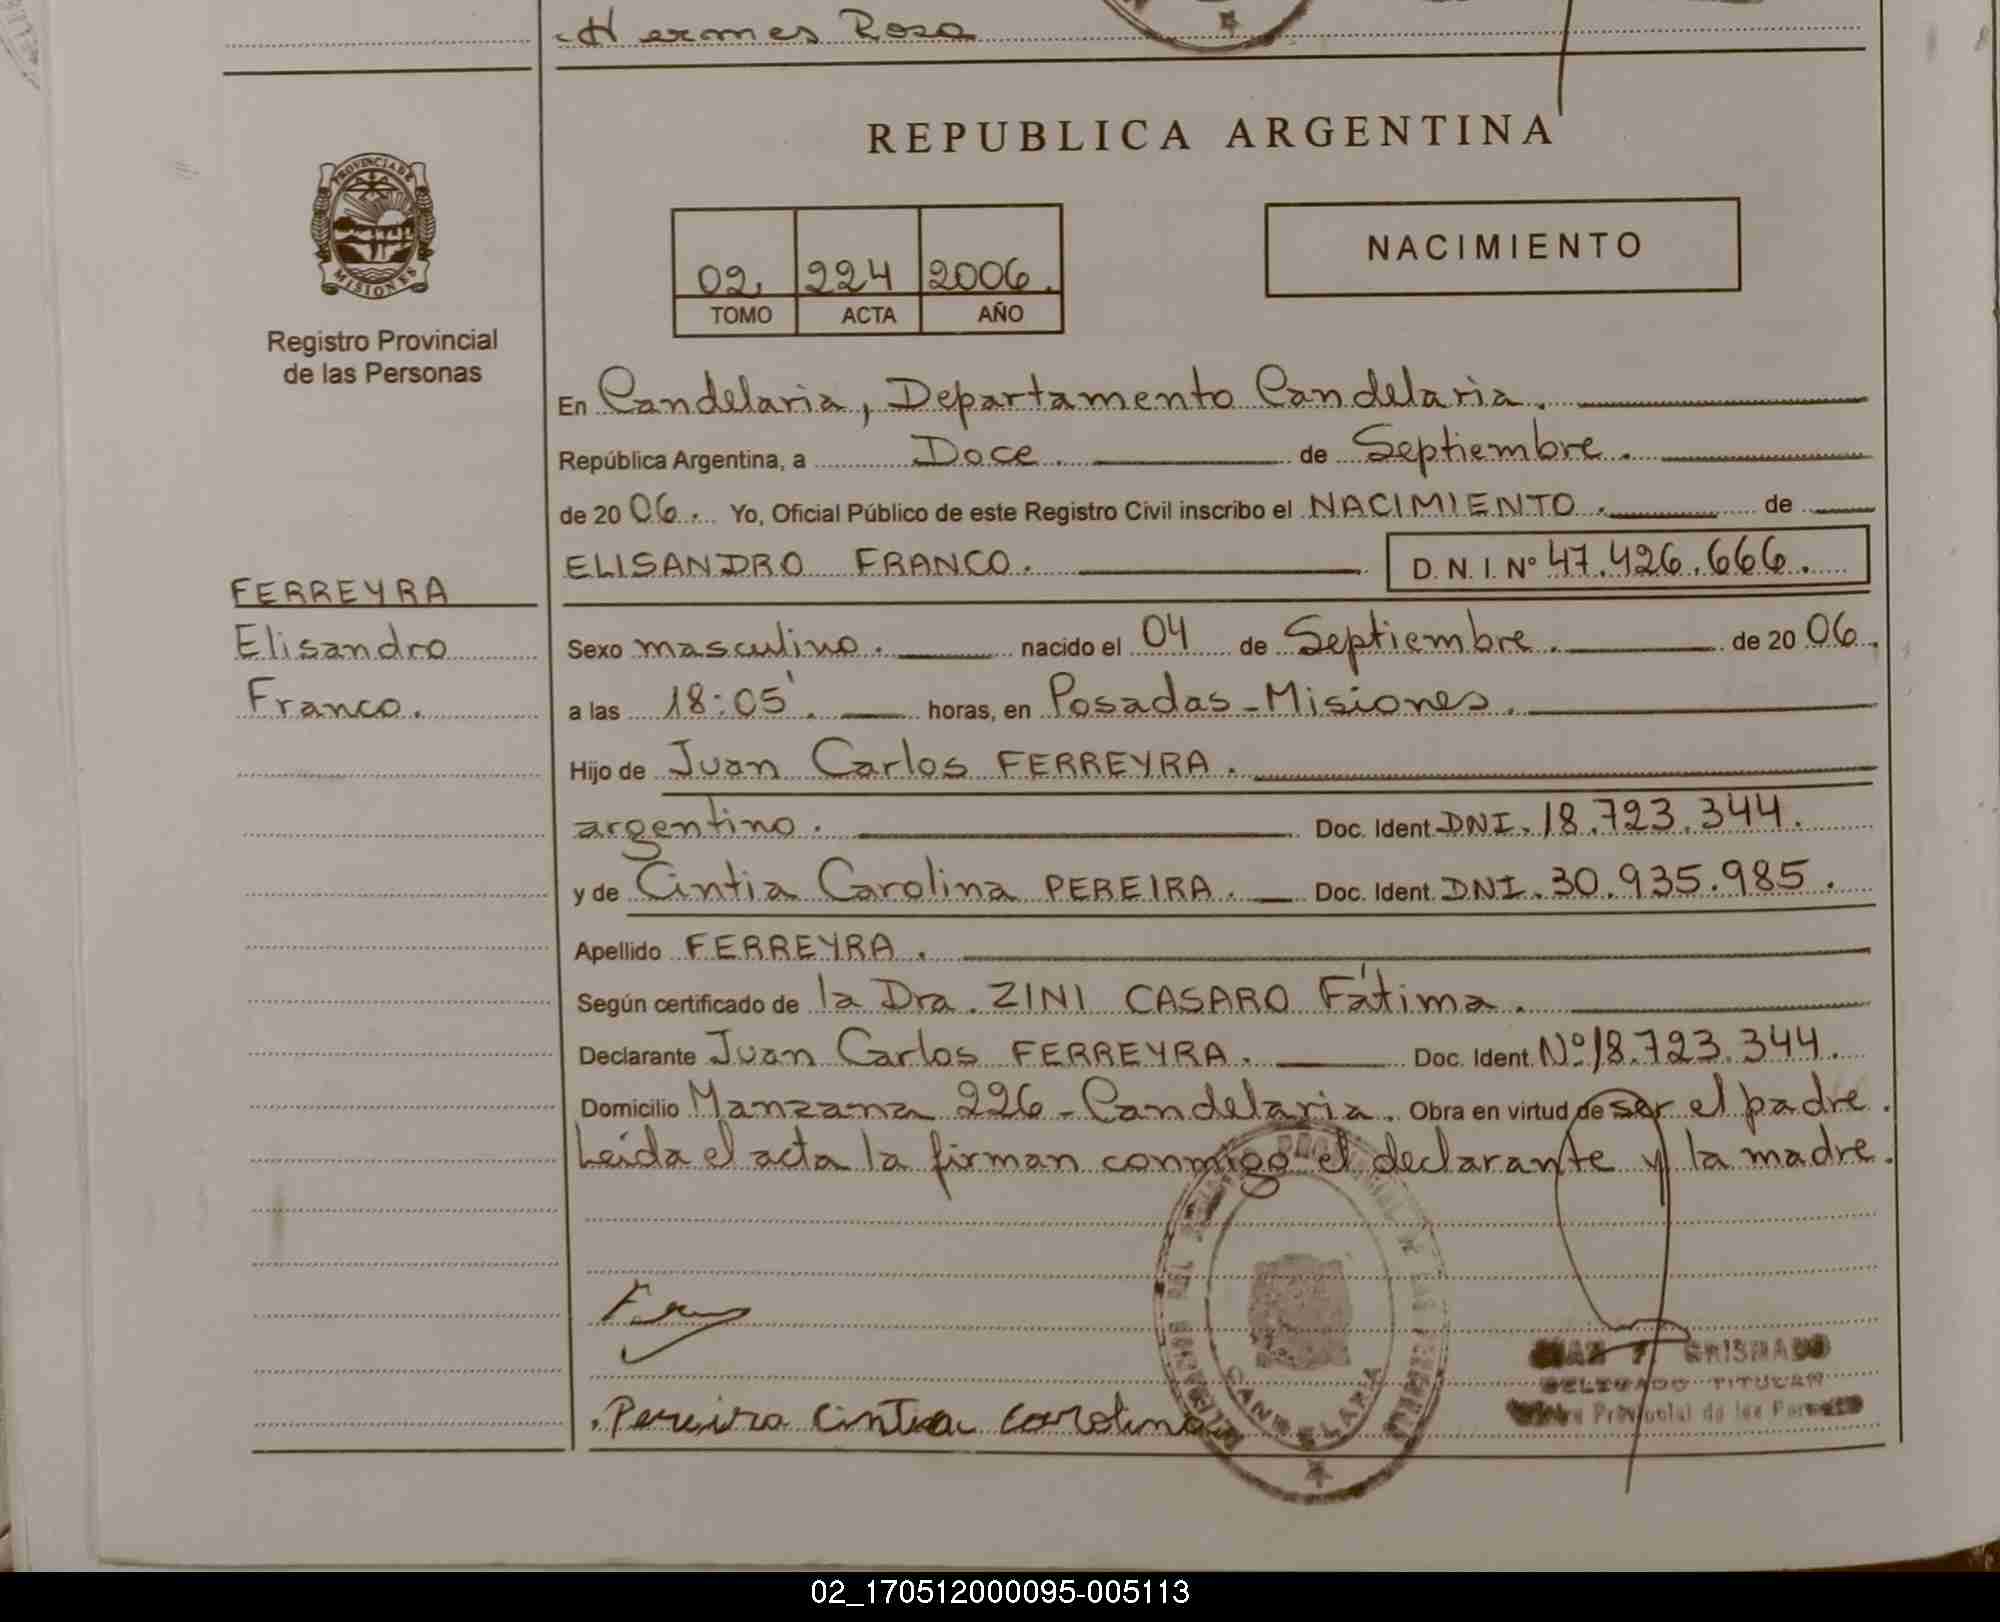 Hermes Rosa
REPUBLICA ARGENTINA
PROVINCIA DE
MISIONES
Registro Provincial
de las Personas
02. 224 2006.
TOMO ACTA AÑO
NACIMIENTO
En Candelaria, Departamento Candelaria.
República Argentina, a Doce. de Septiembre.
de 2006. Yo, Oficial Público de este Registro Civil inscribo el NACIMIENTO. de
ELISANDRO FRANCO. D. N. I. Nº 47.426.666.
FERREYRA
Elisandro
Franco.
Sexo masculino. nacido el 04 de Septiembre. de 2006.
a las 18:05'. horas, en Posadas-Misiones.
Hijo de Juan Carlos FERREYRA.
argentino. Doc. Ident. DNI. 18.723.344.
y de Cintia Carolina PEREIRA. Doc. Ident. DNI. 30.935.985.
Apellido FERREYRA.
Según certificado de la Dra. ZINI CASARO Fátima.
Declarante Juan Carlos FERREYRA. Doc. Ident. Nº 18.723.344.
Domicilio Manzana 226 - Candelaria. Obra en virtud de ser el padre.
Leída el acta la firman conmigo el declarante y la madre.
Pereira Cintia Carolina
CANDELARIA
DELEGADO TITULAR
Provincial de las Personas
02_170512000095-005113